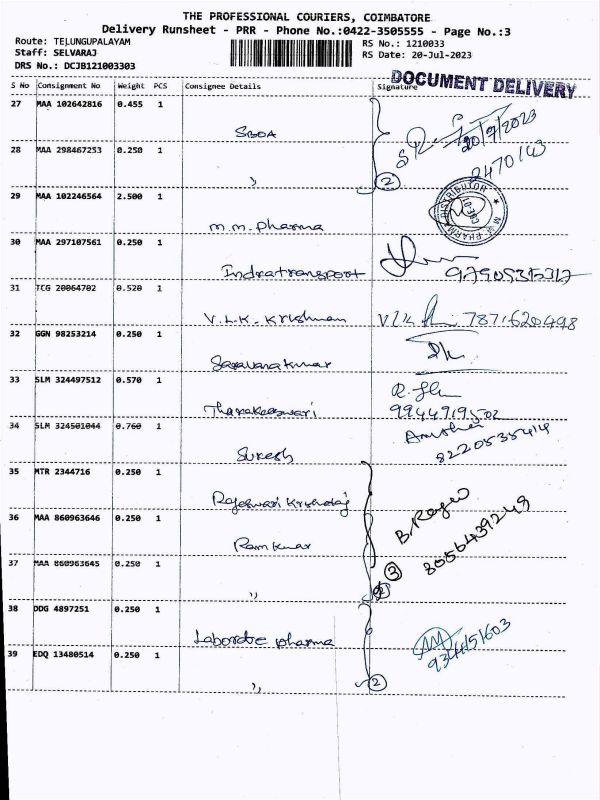 THE PROFESSIONAL COURIERS, COIMBATORE
Delivery Runsheet - PRR - Phone No.:0422-3505555 - Page No.:3
Route: TELUNGUPALAYAM
Staff: SELVARAJ
DRS No.: DCJB121003303
RS No.: 1210033
RS Date: 20-Jul-2023
DOCUMENT DELIVERY
S No Consignment No Weight PCS Consignee Details Signature
27 MAA 102642816 0.455 1
SBOA
20/7/2023
28 MAA 298467253 0.250 1
〃 2
29 MAA 102246564 2.500 1
M.M. Pharma
30 MAA 297107561 0.250 1
Indratransport
31 TCG 20064702 0.520 1
V.L.K. Krishnan 7871620498
32 GGN 98253214 0.250 1
Saravanakumar
33 SLM 324497512 0.570 1
9944919502
34 SLM 324501044 0.760 1
Suresh 8220535414
35 MTR 2344716 0.250 1
36 MAA 860963646 0.250 1
Ramkumar 8056439249
37 MAA 860963645 0.250 1
〃 3
38 DDG 4897251 0.250 1
Laborate pharma
39 EDQ 13480514 0.250 1
〃 2